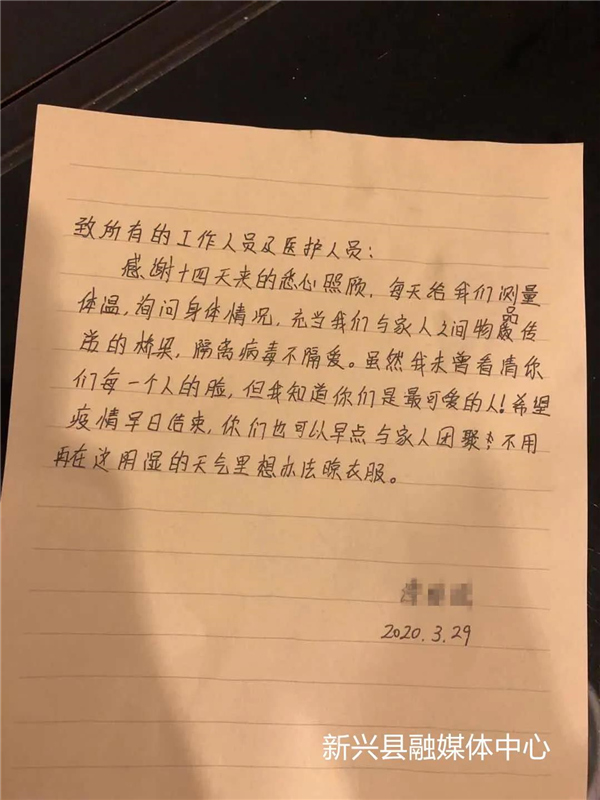 致所有的工作人员及医护人员：
感谢十四天来的悉心照顾，每天给我们测量
体温，询问身体情况，充当我们与家人之间物品传
送的桥梁，隔离病毒不隔爱。虽然我未曾看清你
们每一个人的脸，但我知道你们是最可爱的人！希望
疫情早日结束，你们也可以早点与家人团聚，不用
再在这阴湿的天气里想办法晾衣服。
2020.3.29
新兴县融媒体中心